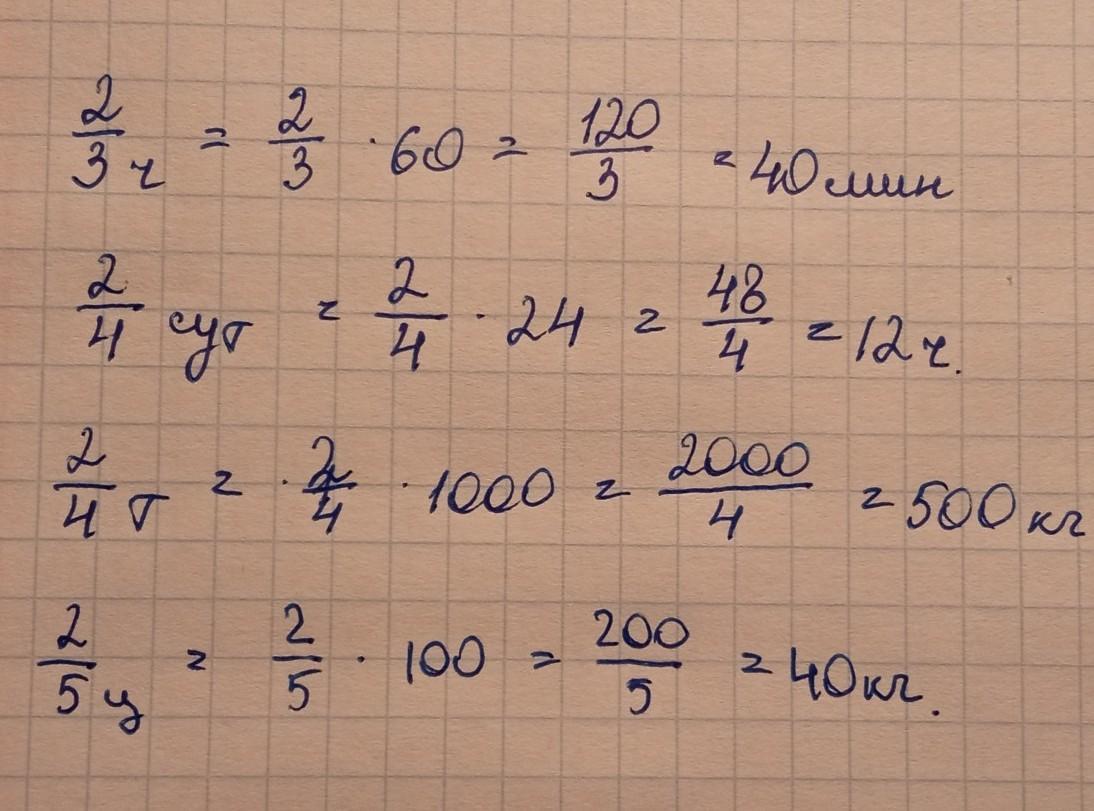 2/3 ч = 2/3 · 60 = 120/3 = 40 мин
2/4 сут = 2/4 · 24 = 48/4 = 12 ч.
2/4 т = · 2/4 · 1000 = 2000/4 = 500 кг
2/5 ц = 2/5 · 100 = 200/5 = 40 кг.